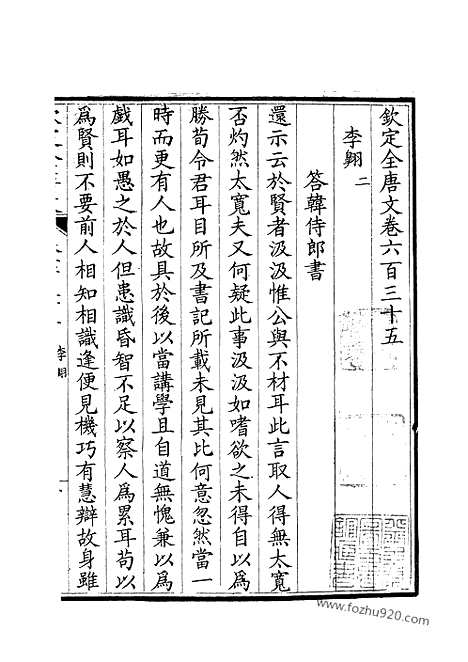 欽定全唐文卷六百三十五
李翶 二
答韓侍郎書
還示云於賢者汲汲惟公與不材耳此言取人得無太寬
否灼然太寬夫又何疑此事汲汲如嗜欲之未得自以爲
勝荀令君耳目所及書記所載未見其比何意忽然當一
時而更有人也故具於後以當講學且自道無愧兼以爲
戲耳如愚之於人但患識昏智不足以察人爲累耳苟以
爲賢則不要前人相知相識逢便見機巧有慧辯故身雖
www.fozhu920.com